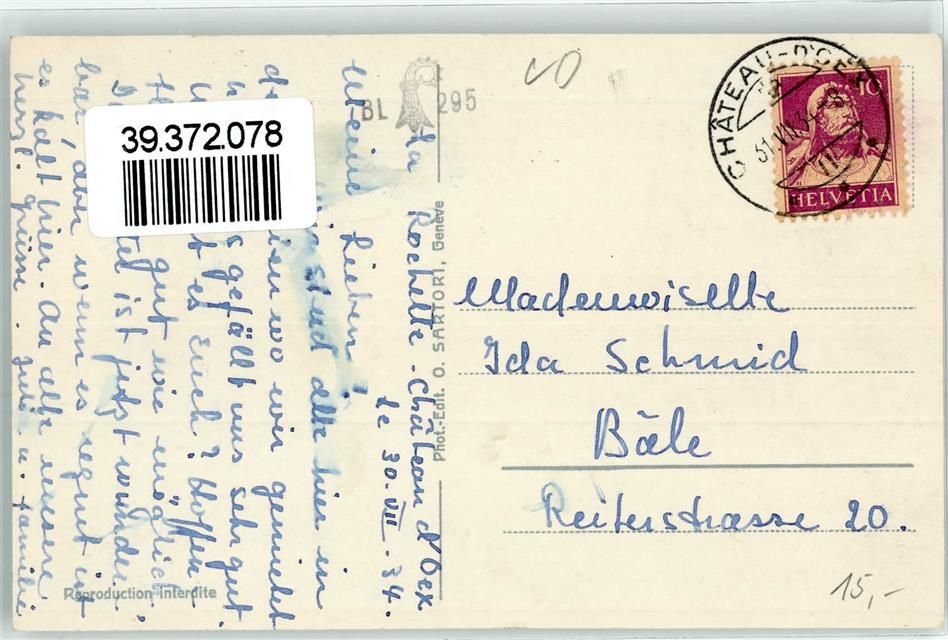 La Rochette - Château d'Oex
le 30.VII.34.
Meine Lieben!
sind alle hier in
wo wir gemietet
gefällt uns sehr gut.
es Euch? Hoffen
gut wie möglich.
ist jetzt wunder-
bar aber wenn es regnet ist
es kalt hier. An alle unsere
herzl. grüsse. Julie u. familie
Mademoiselle
Ida Schmid
Bâle
Reiterstrasse 20.
39.372.078
BL 295
VD
CHÂTEAU-D'OEX
31.VII.34
10
HELVETIA
Phot.-Edit. O. SARTORI, Genève
Reproduction interdite
15,-